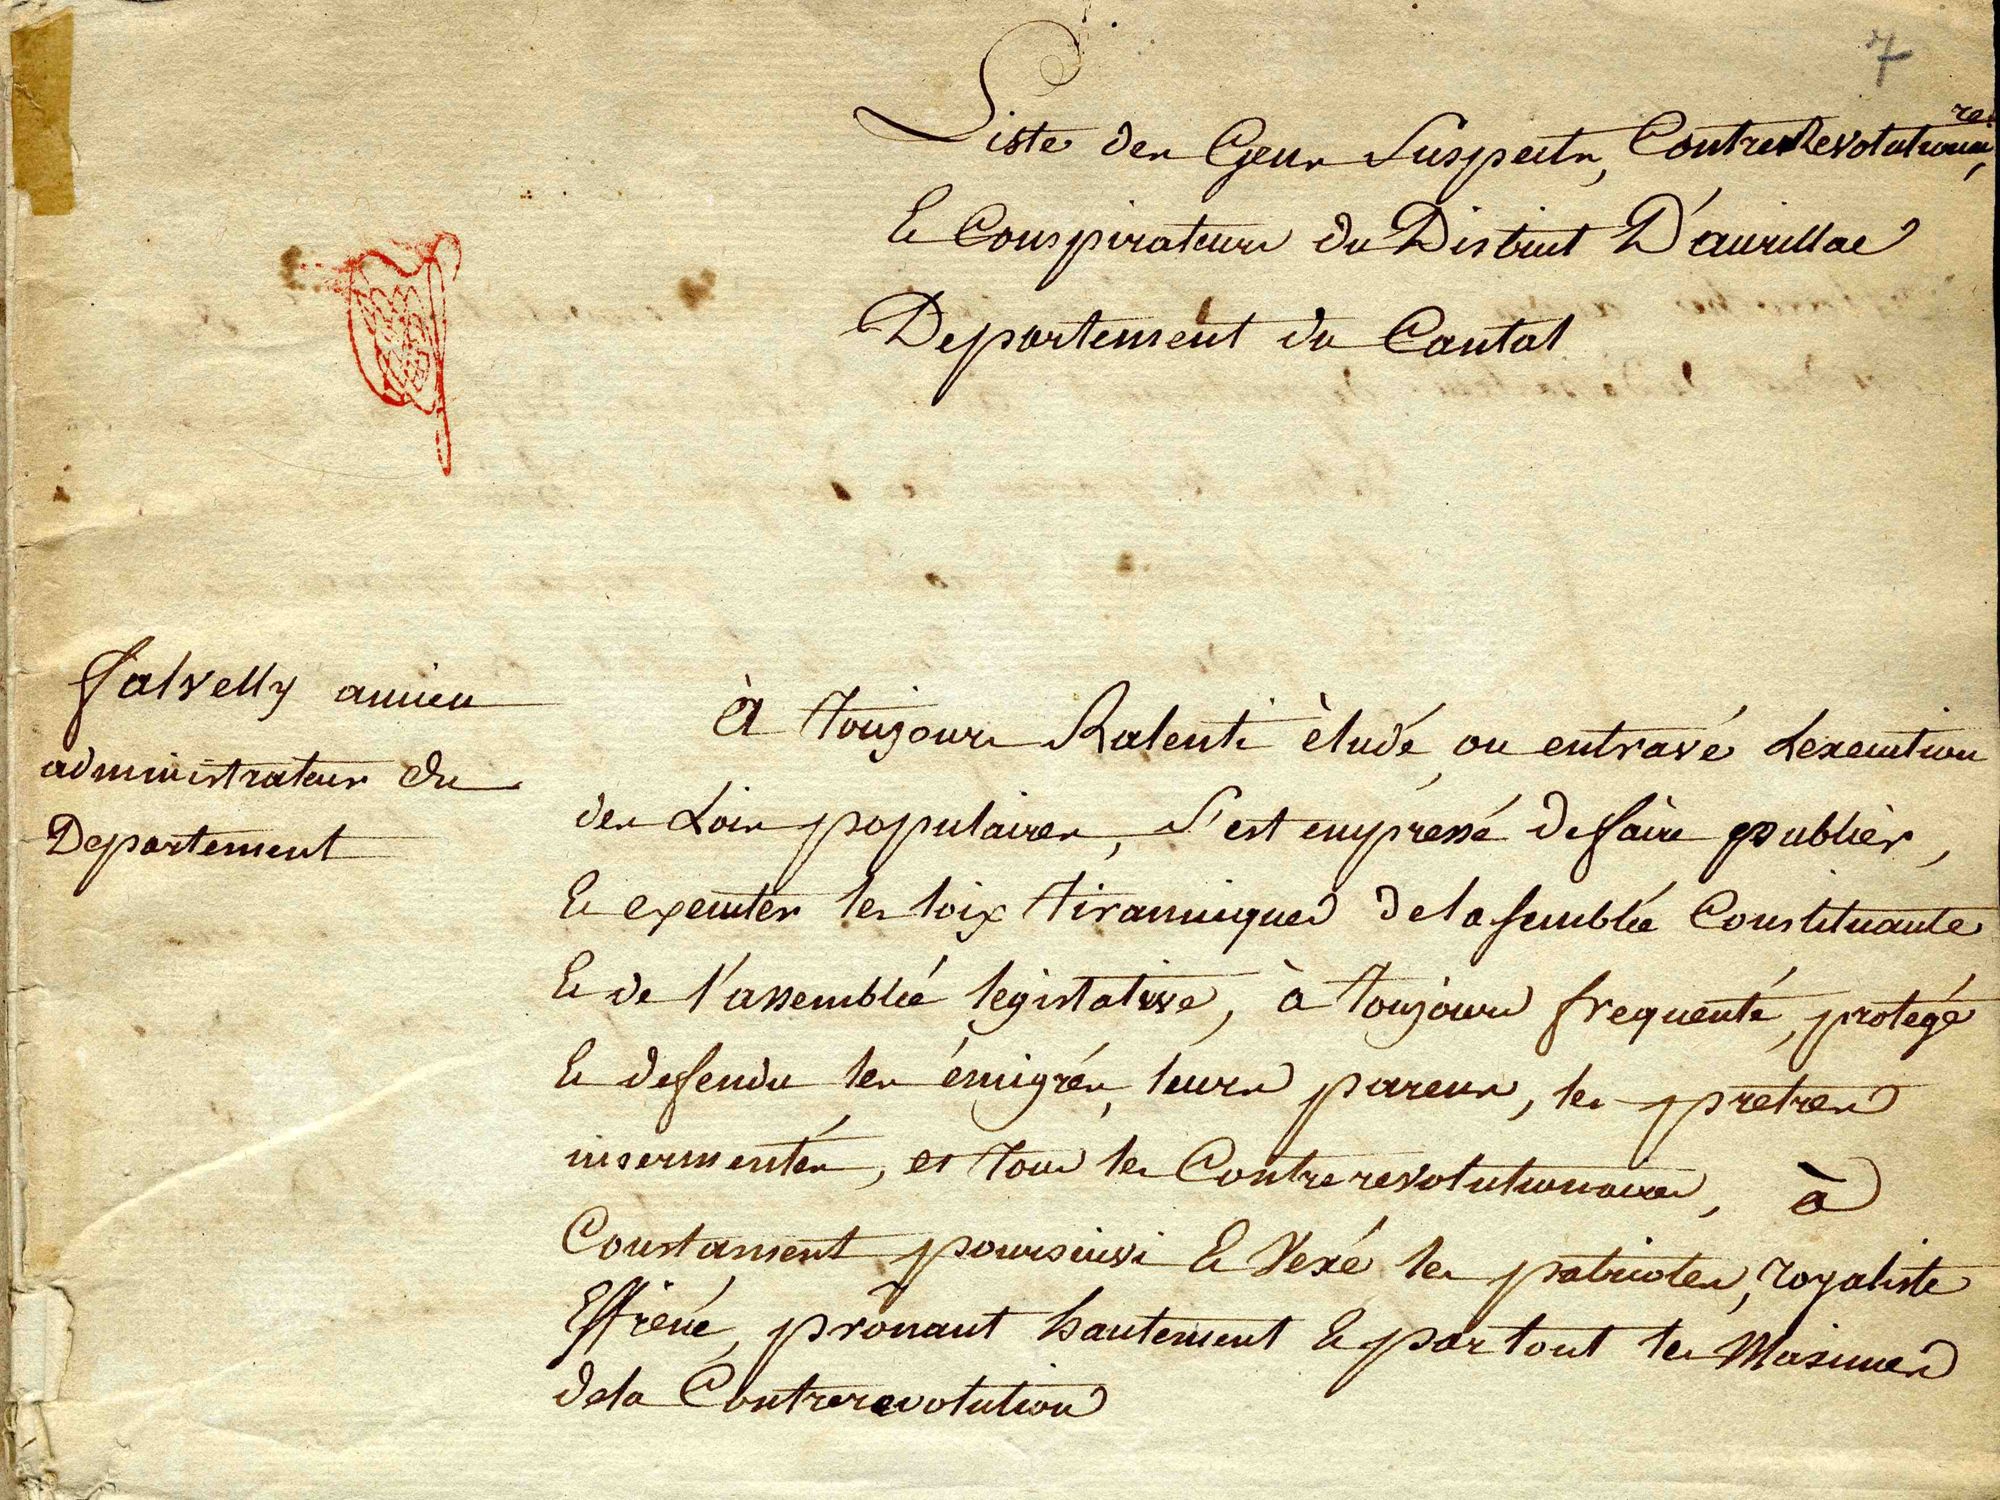 7
Liste des Gens Suspects, Contre Revolutionaires,
Et Conspirateurs du District D'aurillac
Departement du Cantal
falvelly ancien
administrateur du
Departement
à toujours Ralenti èludé, ou entravé Lexecution
des Loix populaires, S'est empressé de faire publièr,
Et executer les loix tiranniques de lasemblée Constituante
Et de l'assemblée lègislative, à toujours frequenté, protégé
Et defendu les émigrés, leurs parens, les prêtres
insermentés, et tous les Contrerevolutionaires, à
Constament poursuivi Et Vexé les patriotes, royaliste
Effrené, prônant hautement Et partout les Maximes
dela Contrerevolution